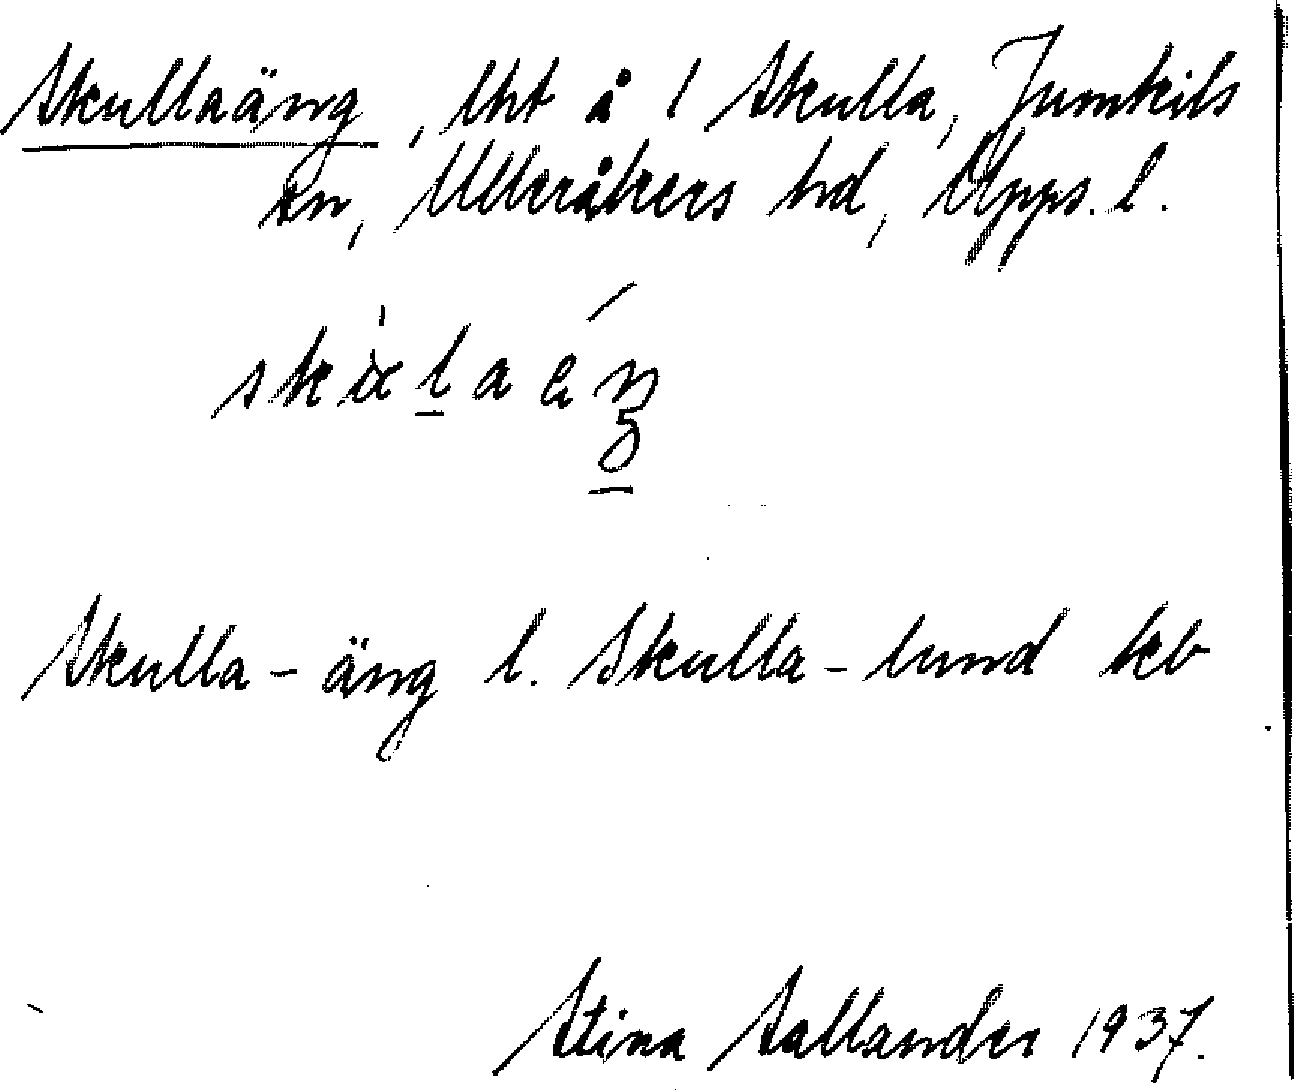 Skullaäng, lht å 1 Skulla, Jumkils
sn, Ulleråkers hd, Upps. l.
Skulla-äng l. Skulla-lund kb
Stina Sallander 1937.